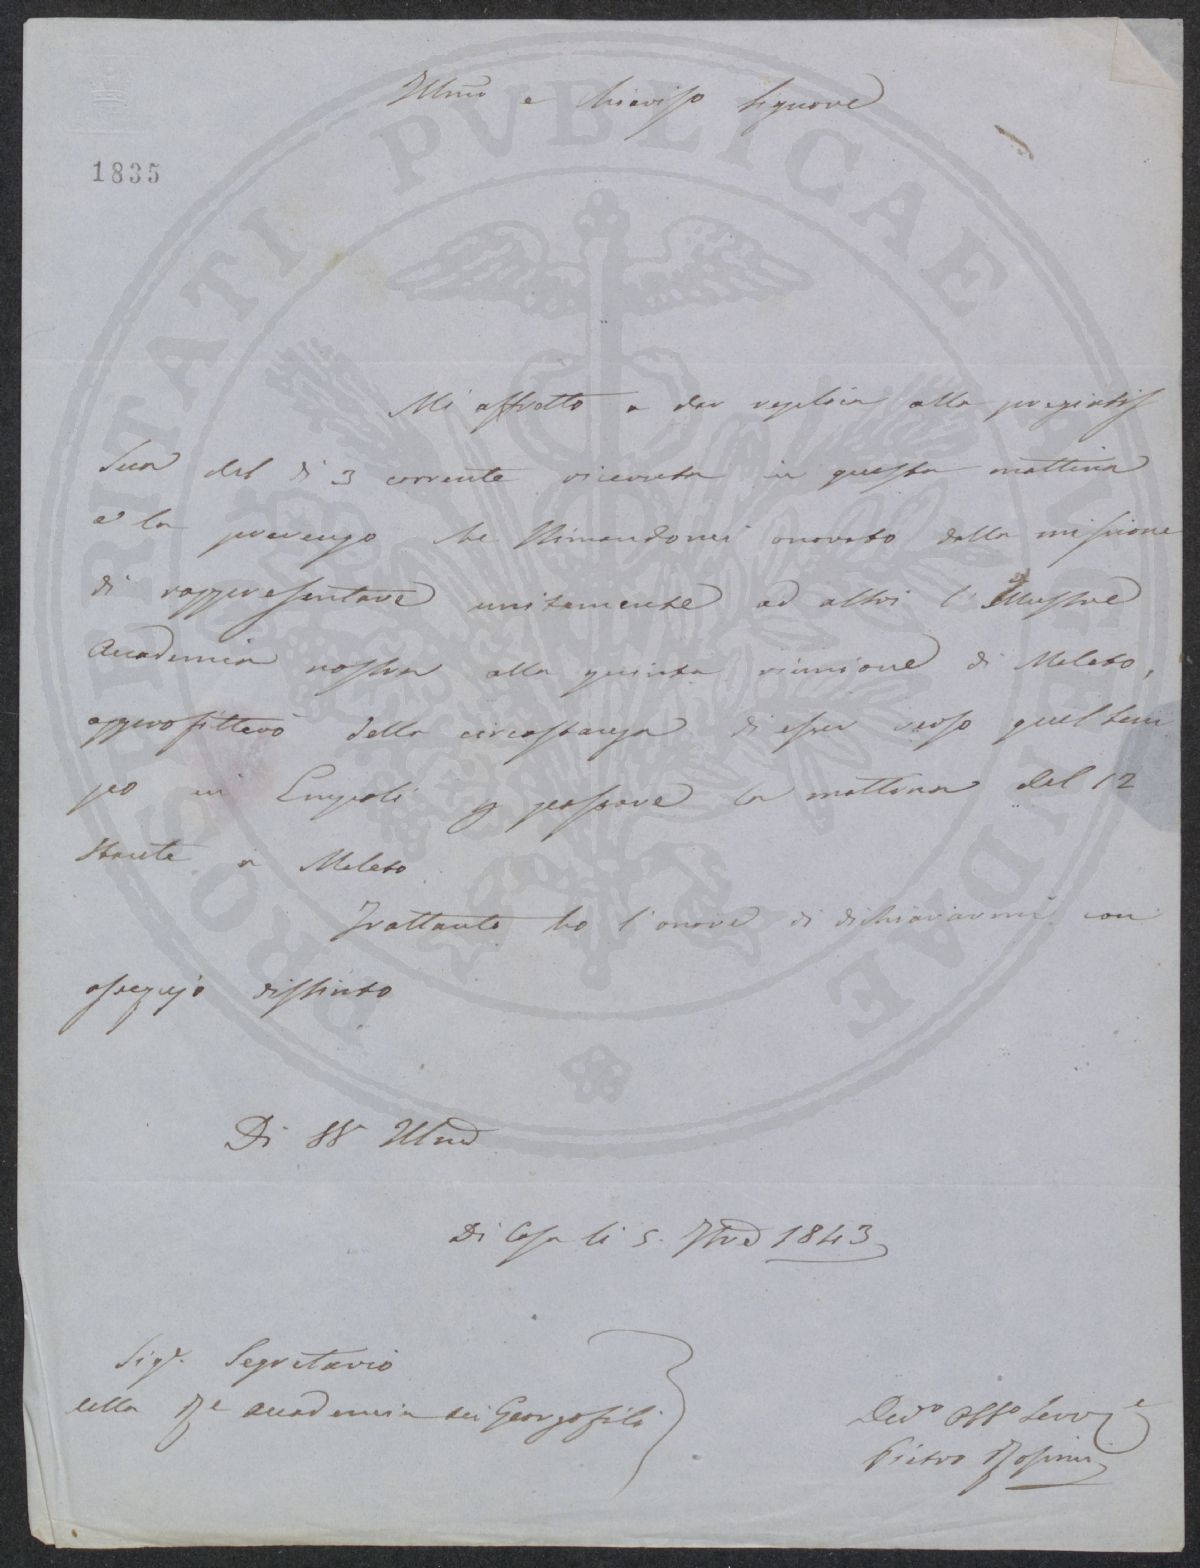 Illmo e Chiariss Signore
1835
Mi affretto a dar replica alla pregiatiss
Sua del di 3 corrente ricevuta in questa mattina
e la prevengo che tenendomi onorato della missione
di rappresentare unitamente ad altri l'Illustre
Accademia vostra alla quinta riunione di Meleto,
approfitterò della circostanza di esser verso quel tem
po in Empoli p passare la mattina del 12
stante a Meleto.
Frattanto ho l'onore di dichiararmi con
ossequio distinto
Di VS Illma
Di Casa li 5. 7bre 1843
Sigr. Segretario
della R. Accademia dei Georgofili
Devo Obbo Servre
Pietro Rossini
PROSPERITATI PVBLICAE AVGENDAE